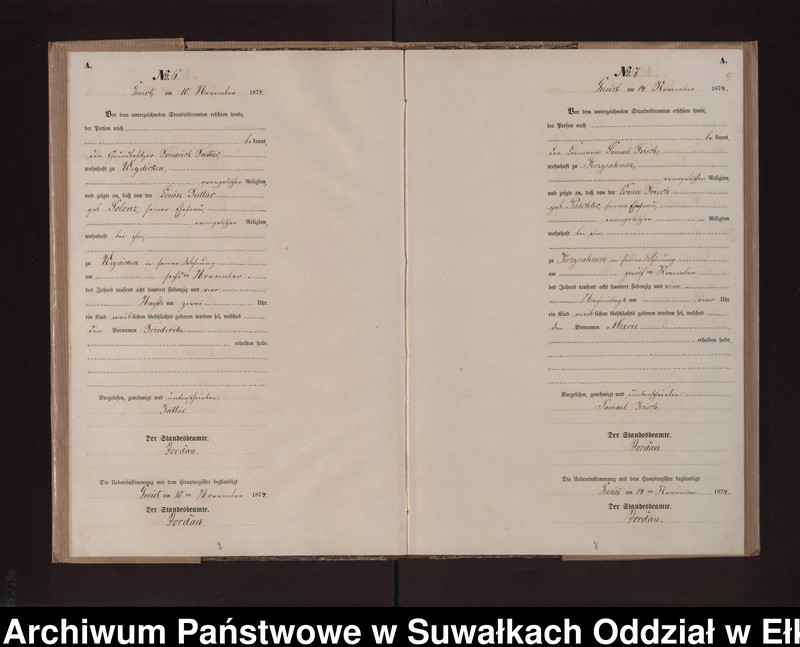 A.
No. 6.
am 10. November 1874.
Vor dem unterzeichneten Standesbeamten erschien heute,
der Person nach
bekannt,
den Grundbesitzer Friedrich
wohnhaft zu
evangelischer Religion,
und zeigte an, daß von der Louise
geb. seiner Ehefrau,
evangelischer Religion,
wohnhaft bei ihm,
zu in seiner Wohnung
am sechsten November
des Jahres tausend acht hundert siebenzig und vier
Nachts um zwei Uhr
ein Kind weiblichen Geschlechts geboren worden sei, welches
den Vornamen Friederike
erhalten habe.
Vorgelesen, genehmigt und unterschrieben.
Der Standesbeamte.
Jordan.
Die Uebereinstimmung mit dem Hauptregister beglaubigt
am 10 ten November 1874.
Der Standesbeamte.
Jordan.
7
A.
No. 7.
am 14. November 1874.
Vor dem unterzeichneten Standesbeamten erschien heute,
der Person nach
bekannt,
der Samuel
wohnhaft zu
evangelischer Religion,
und zeigte an, daß von der Louise
geb. seiner Ehefrau,
evangelischer Religion,
wohnhaft bei ihm,
zu in seiner Wohnung
am zwölften November
des Jahres tausend acht hundert siebenzig und vier
Nachmittags um vier Uhr
ein Kind weiblichen Geschlechts geboren worden sei, welches
den Vornamen Marie
erhalten habe.
Vorgelesen, genehmigt und unterschrieben
Samuel
Der Standesbeamte.
Jordan
Die Uebereinstimmung mit dem Hauptregister beglaubigt
am 14 ten November 1874.
Der Standesbeamte.
Jordan.
8
Archiwum Państwowe w Suwałkach Oddział w Ełk